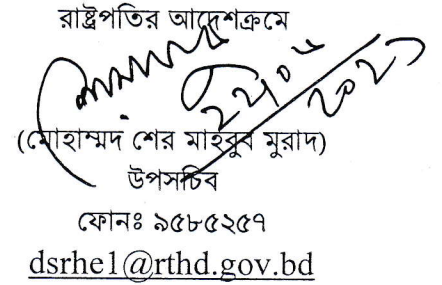 রাষ্ট্রপতির আদেশক্রমে
(মোহাম্মদ শের মাহবুব মুরাদ)
উপসচিব
ফোনঃ ৯৫৮৫২৫৭
dsrhe1@rthd.gov.bd